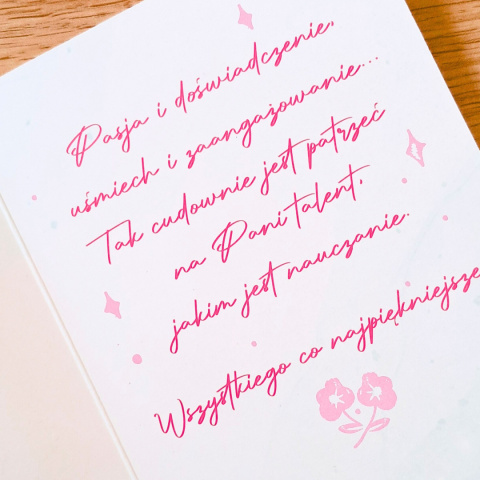 Pasja i doświadczenie,
uśmiech i zaangażowanie...
Tak cudownie jest patrzeć
na Pani talent,
jakim jest nauczanie.
Wszystkiego co najpiękniejsze